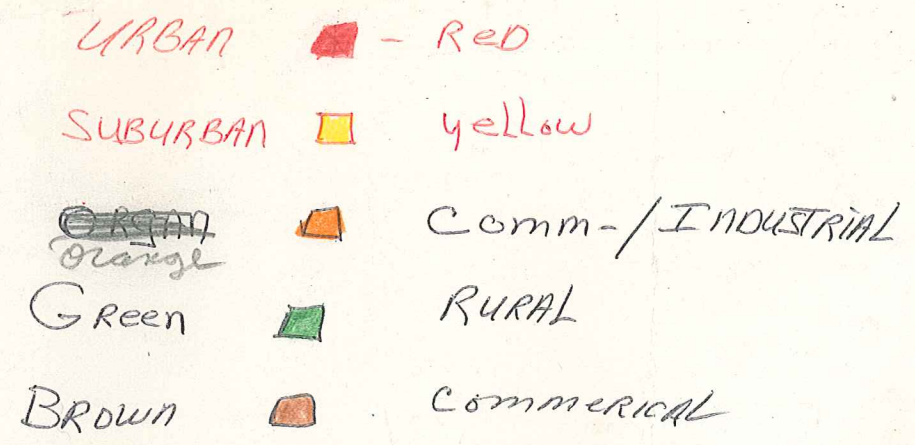 URBAN - ReD
SUBURBAN yellow
ORgAn Comm-/INDUSTRIAL
Orange
GReen RURAL
BROWn CommeRICAL